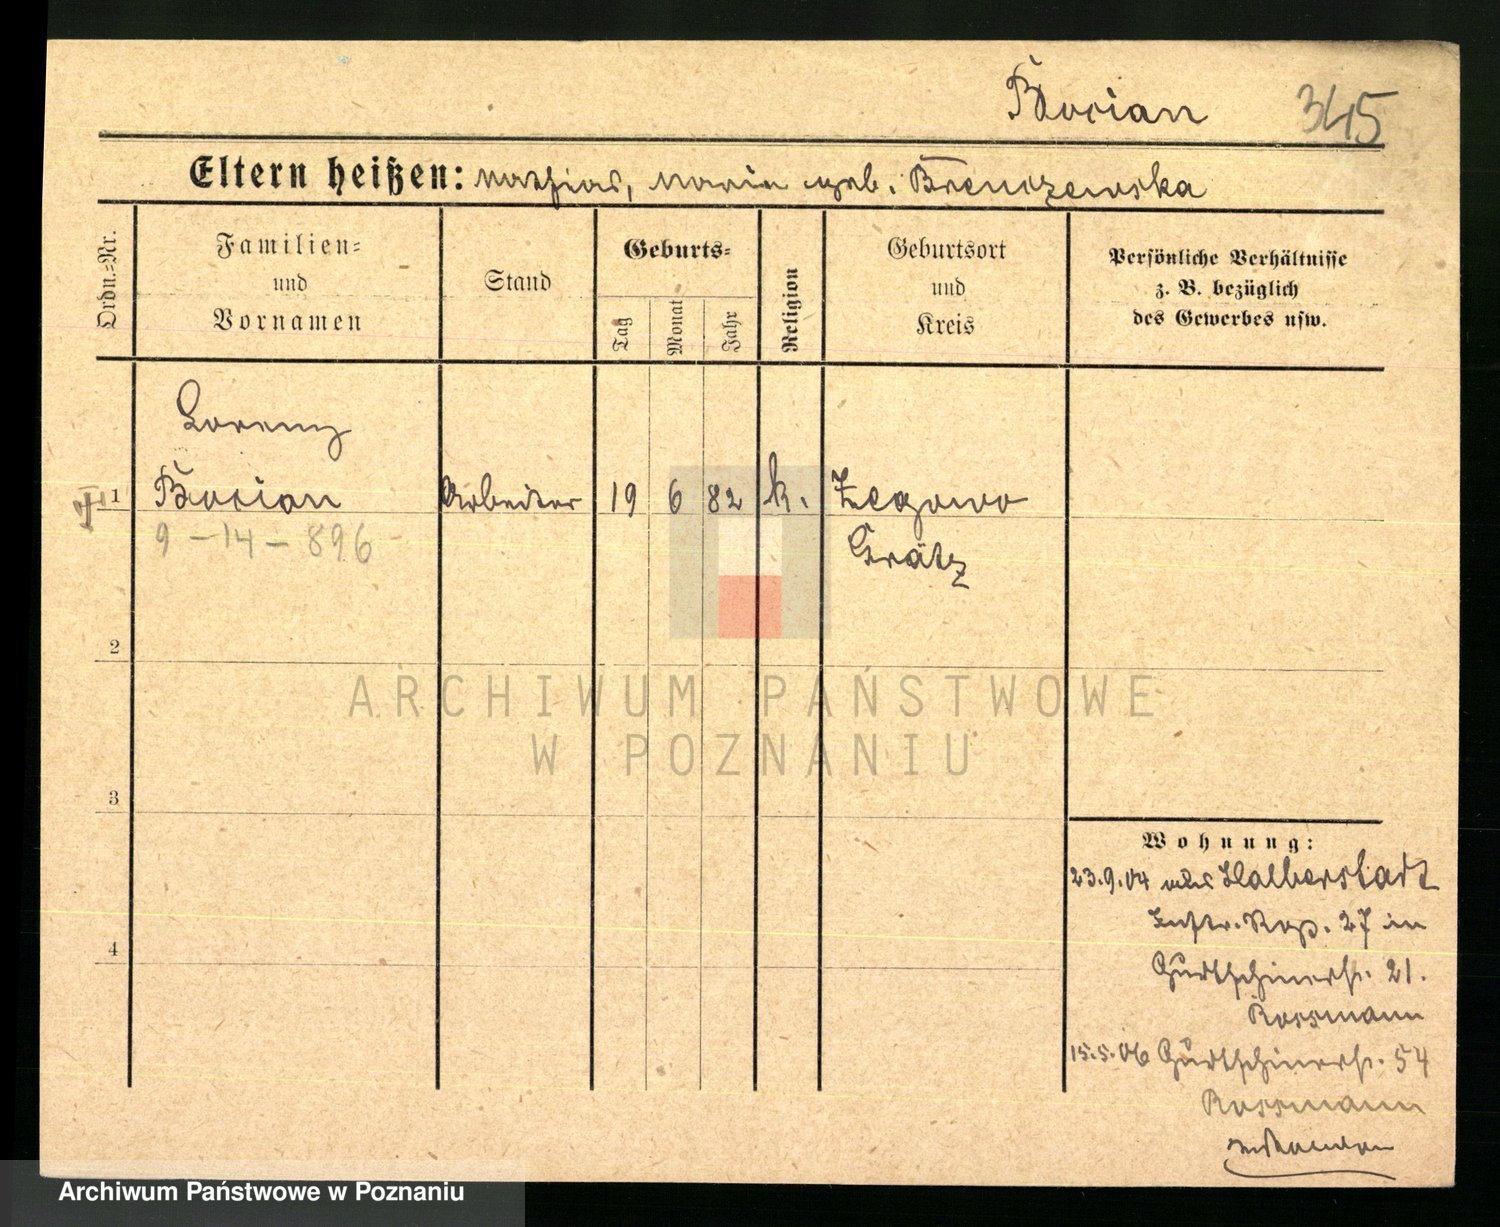 Bocian 345
Eltern heißen: Mathias, Marie geb. Brenczewska
Ordn.-Nr.
Familien-
und
Vornamen
Stand
Geburts-
Tag
Monat
Jahr
Religion
Geburtsort
und
Kreis
Persönliche Verhältnisse
z. B. bezüglich
des Gewerbes usw.
Lorenz
1 Bocian Arbeiter 19 6 82 k. Zegowo
9 - 14 - 896 Grätz
2
ARCHIWUM PAŃSTWOWE
W POZNANIU
3
Wohnung:
23.9.04 aus Halberstadt
Inftr. Reg. 27 in
4
Gurtschinerst. 21.
Rossmann
15.5.06 Gurtschinerst. 54
Rossmann
Archiwum Państwowe w Poznaniu